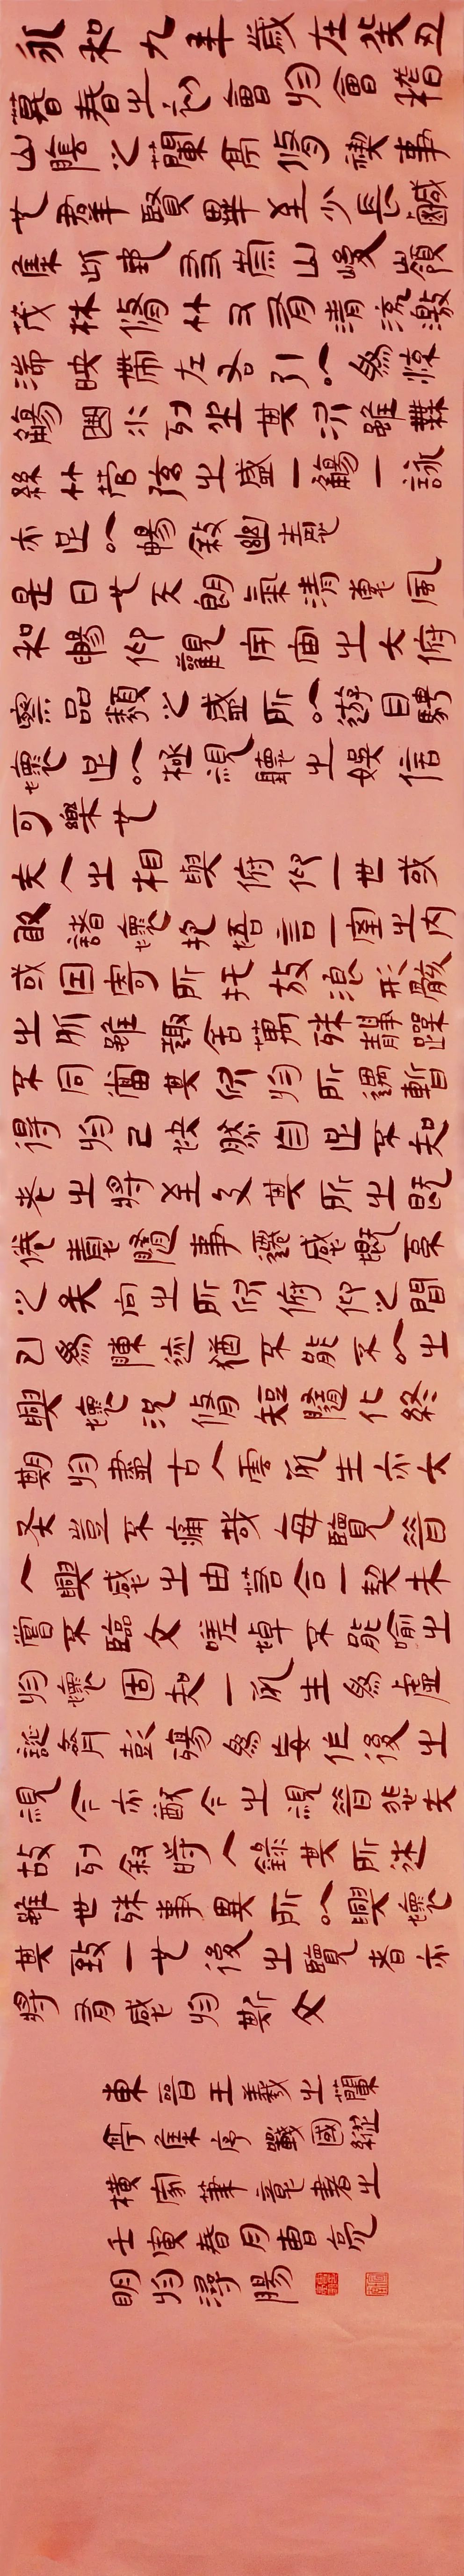 永和九年歲在癸丑
暮春之初會於會稽
山陰之蘭亭脩禊事
也群賢畢至少長咸
集此地有崇山峻領
茂林脩竹又有清流激
湍映帶左右引以為流
觴曲水列坐其次雖無
絲竹管弦之盛一觴一詠
亦足以暢敘幽情
是日也天朗氣清惠風
和暢仰觀宇宙之大俯
察品類之盛所以遊目騁
懷足以極視聽之娛信
可樂也
夫人之相與俯仰一世或
取諸懷抱悟言一室之內
或因寄所托放浪形骸
之外雖趣舍萬殊靜躁
不同當其欣於所遇暫
得於己快然自足不知
老之將至及其所之既
倦情隨事遷感慨系
之矣向之所欣俯仰之間
已為陳迹猶不能不以之
興懷況脩短隨化終
期於盡古人云死生亦大
矣豈不痛哉每覽昔
人興感之由若合一契未
嘗不臨文嗟悼不能喻之
於懷固知一死生為虛
誕齊彭殤為妄作後之
視今亦猶今之視昔悲夫
故列敘時人錄其所述
雖世殊事異所以興懷
其致一也後之覽者亦
將有感於斯文
東晉王羲之蘭
亭集序戰國縱
橫家筆意書之
壬寅春月曹亮
明於潯陽